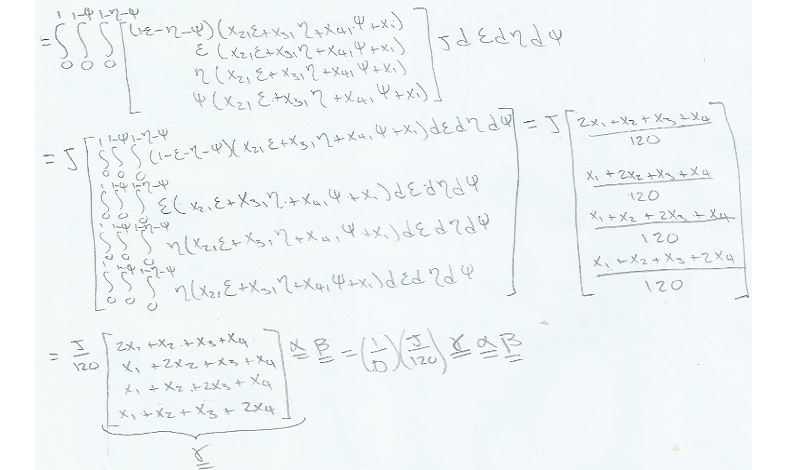 = ∫₀¹ ∫₀^{1-ψ} ∫₀^{1-η-ψ} [ (1-ε-η-ψ)(x₂₁ε+x₃₁η+x₄₁ψ+x₁)
ε(x₂₁ε+x₃₁η+x₄₁ψ+x₁)
η(x₂₁ε+x₃₁η+x₄₁ψ+x₁)
ψ(x₂₁ε+x₃₁η+x₄₁ψ+x₁) ] J dε dη dψ
= J [ ∫₀¹ ∫₀^{1-ψ} ∫₀^{1-η-ψ} (1-ε-η-ψ)(x₂₁ε+x₃₁η+x₄₁ψ+x₁) dε dη dψ
∫₀¹ ∫₀^{1-ψ} ∫₀^{1-η-ψ} ε(x₂₁ε+x₃₁η+x₄₁ψ+x₁) dε dη dψ
∫₀¹ ∫₀^{1-ψ} ∫₀^{1-η-ψ} η(x₂₁ε+x₃₁η+x₄₁ψ+x₁) dε dη dψ
∫₀¹ ∫₀^{1-ψ} ∫₀^{1-η-ψ} η(x₂₁ε+x₃₁η+x₄₁ψ+x₁) dε dη dψ ]
= J [ (2x₁+x₂+x₃+x₄)/120
(x₁+2x₂+x₃+x₄)/120
(x₁+x₂+2x₃+x₄)/120
(x₁+x₂+x₃+2x₄)/120 ]
= J/120 [ 2x₁+x₂+x₃+x₄
x₁+2x₂+x₃+x₄
x₁+x₂+2x₃+x₄
x₁+x₂+x₃+2x₄ ] α β = (1/D)(J/120) γ α β
γ